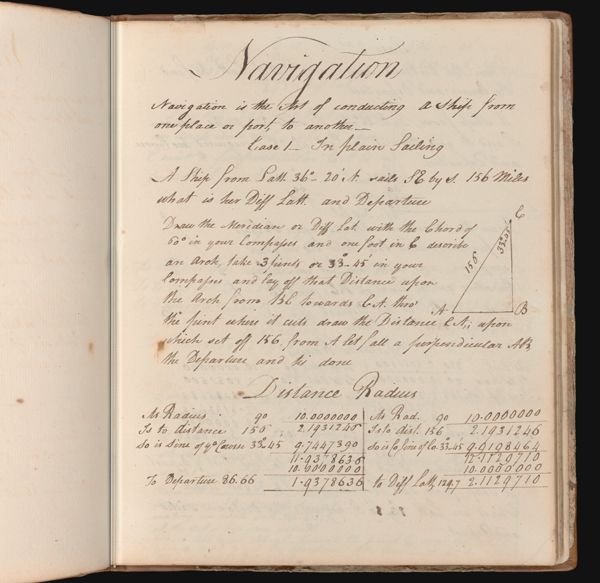 Navigation
Navigation is the Art of conducting a Ship from
one place or port, to another —
Case 1 — In plain Sailing
A Ship from Latt. 36°- 20' N. sails SE by S. 156 Miles
what is her Diff Latt. and Departure
Draw the Meridian or Diff Lat. with the Chord of
60° in your Compasses and one foot in C describe
an Arch, take 3 points or 33°- 45' in your
Compasses and lay off that Distance upon
the Arch from BC towards CA. thro'
the point where it cuts draw the Distance CA,; upon
which set off 156, from A let fall a perpendicular AB
the Departure and tis done
C
33°.45'
156
A
B
Distance Radius
As Radius 90 10.0000000
Is to distance 156 2.1931246
So is Sine of yᵉ Course 33°45 9.7447390
11.9378636
10.0000000
To Departure 86.66 1.9378636
As Rad. 90 10.0000000
Is to dist. 156 2.1931246
So is Co. Sine of Co. 33°-45 9.9198464
12.1129710
10.0000000
To Diff Latt, 129.7 2.1129710